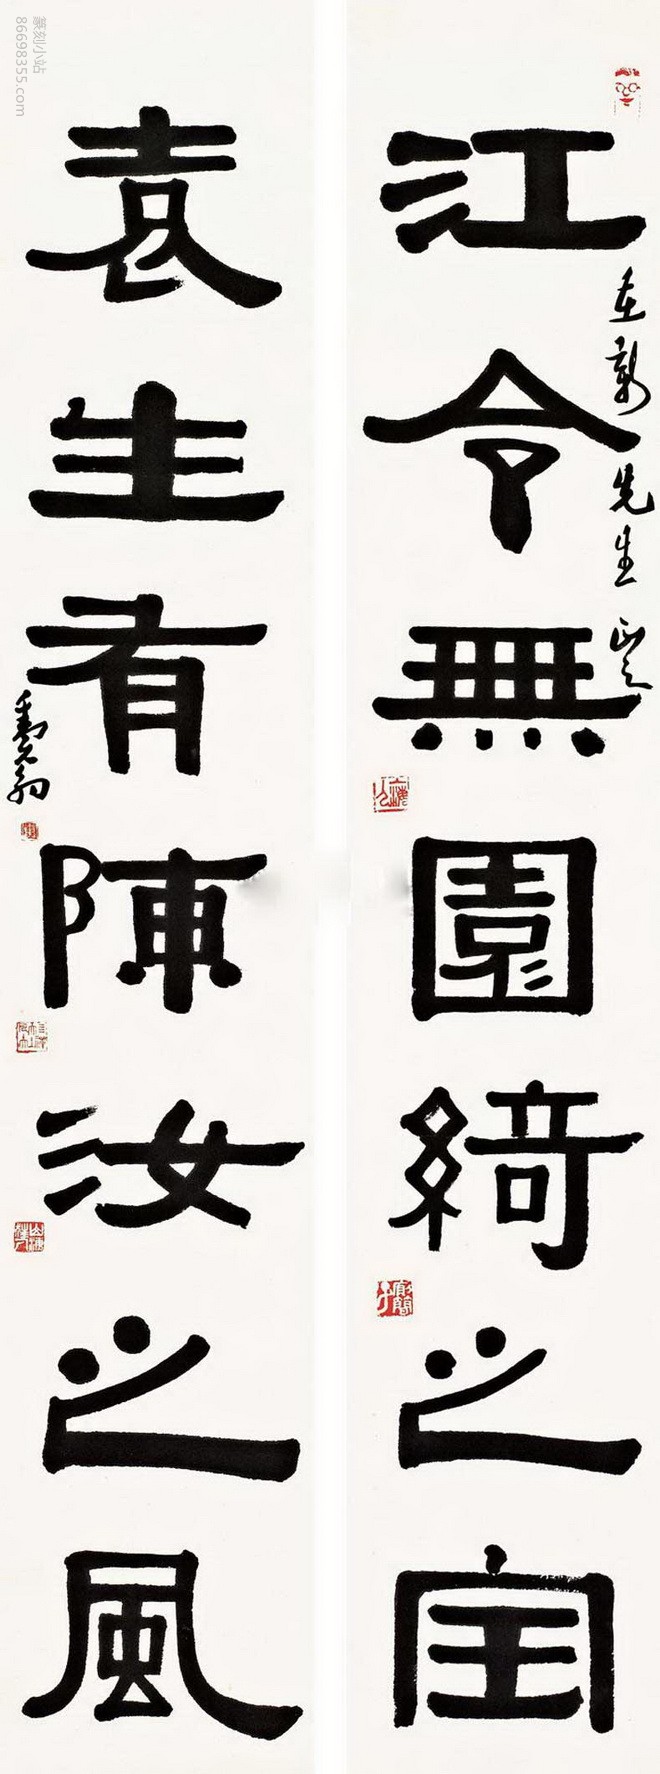 江令無園綺之宝
在新先生正之
袁生有陳汝之風
篆刻小站
86698355.com